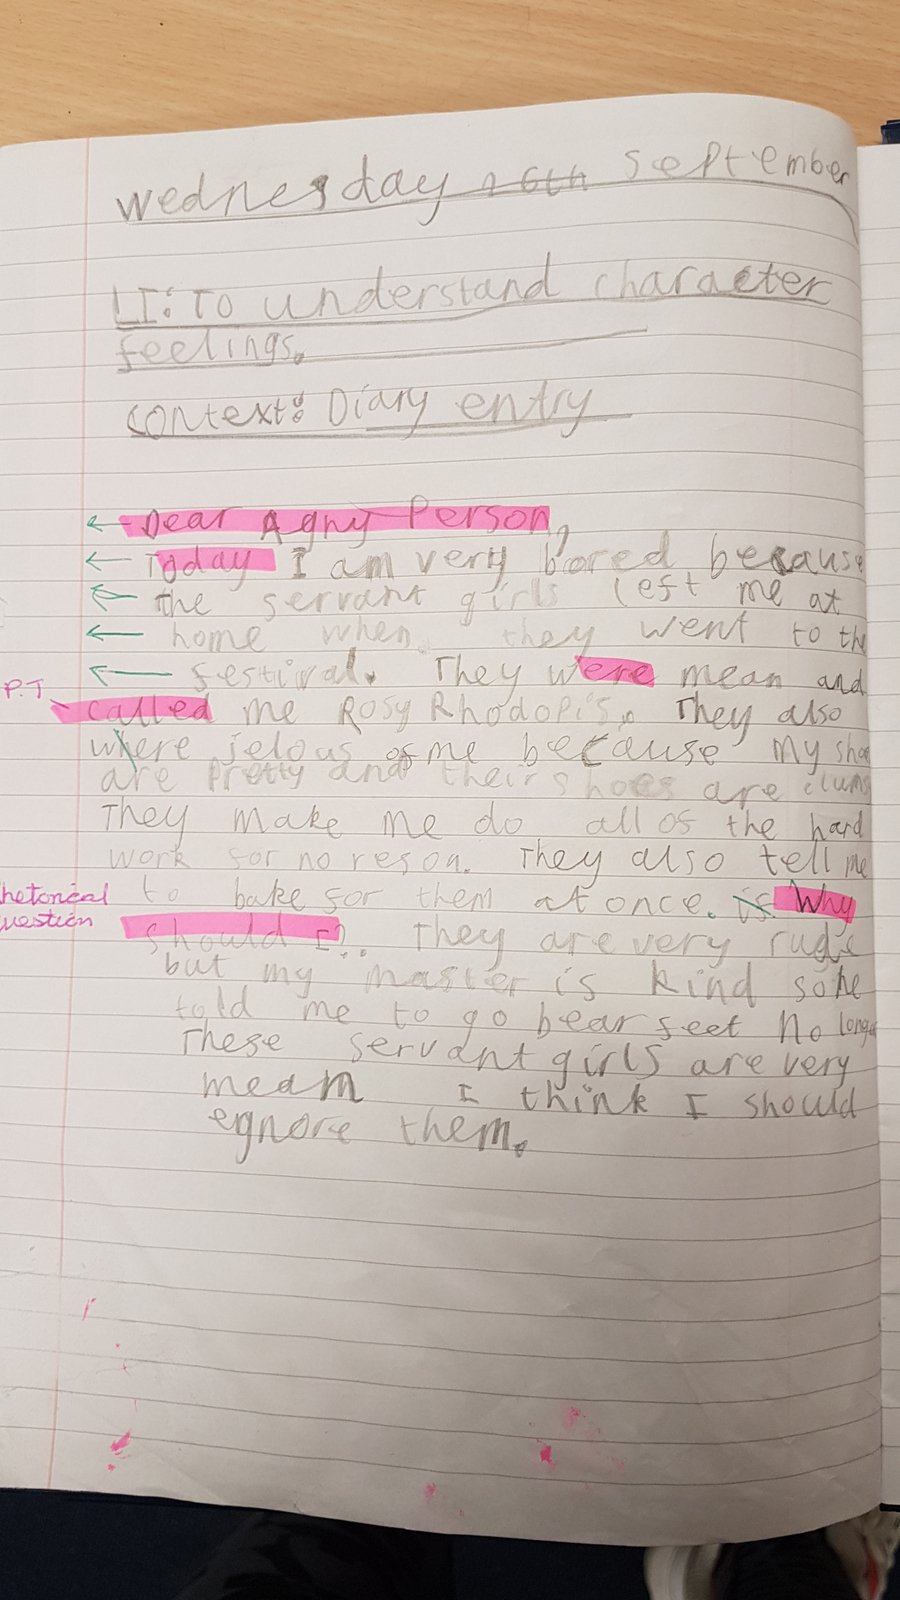 Wednesday 16th September
LI: To understand character
feelings.
Context: Diary entry
Dear Agny Person,
Today I am very bored because
the servant girls left me at
home when they went to the
festival. They were mean and
P.T
called me Rosy Rhodopi's. They also
where jelous of me because my sho
are pretty and their shoes are clums
They make me do all of the hard
work for no reson. They also tell me
hetorical
uestion
to bake for them at once. is Why
should I?. They are very rude
but my master is kind so he
told me to go bear feet no longe
These servant girls are very
mean I think I should
egnore them.